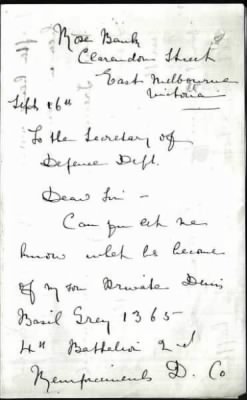 Rose Bank
Clarendon Street
East Melbourne
Victoria
Sept 16th
To the Secretary of
Defence Dept.
Dear Sir -
Can you let me
know what has become
of my son Private Denis
Basil Grey 1365
4th Battalion 2nd
Reinforcements D. Co